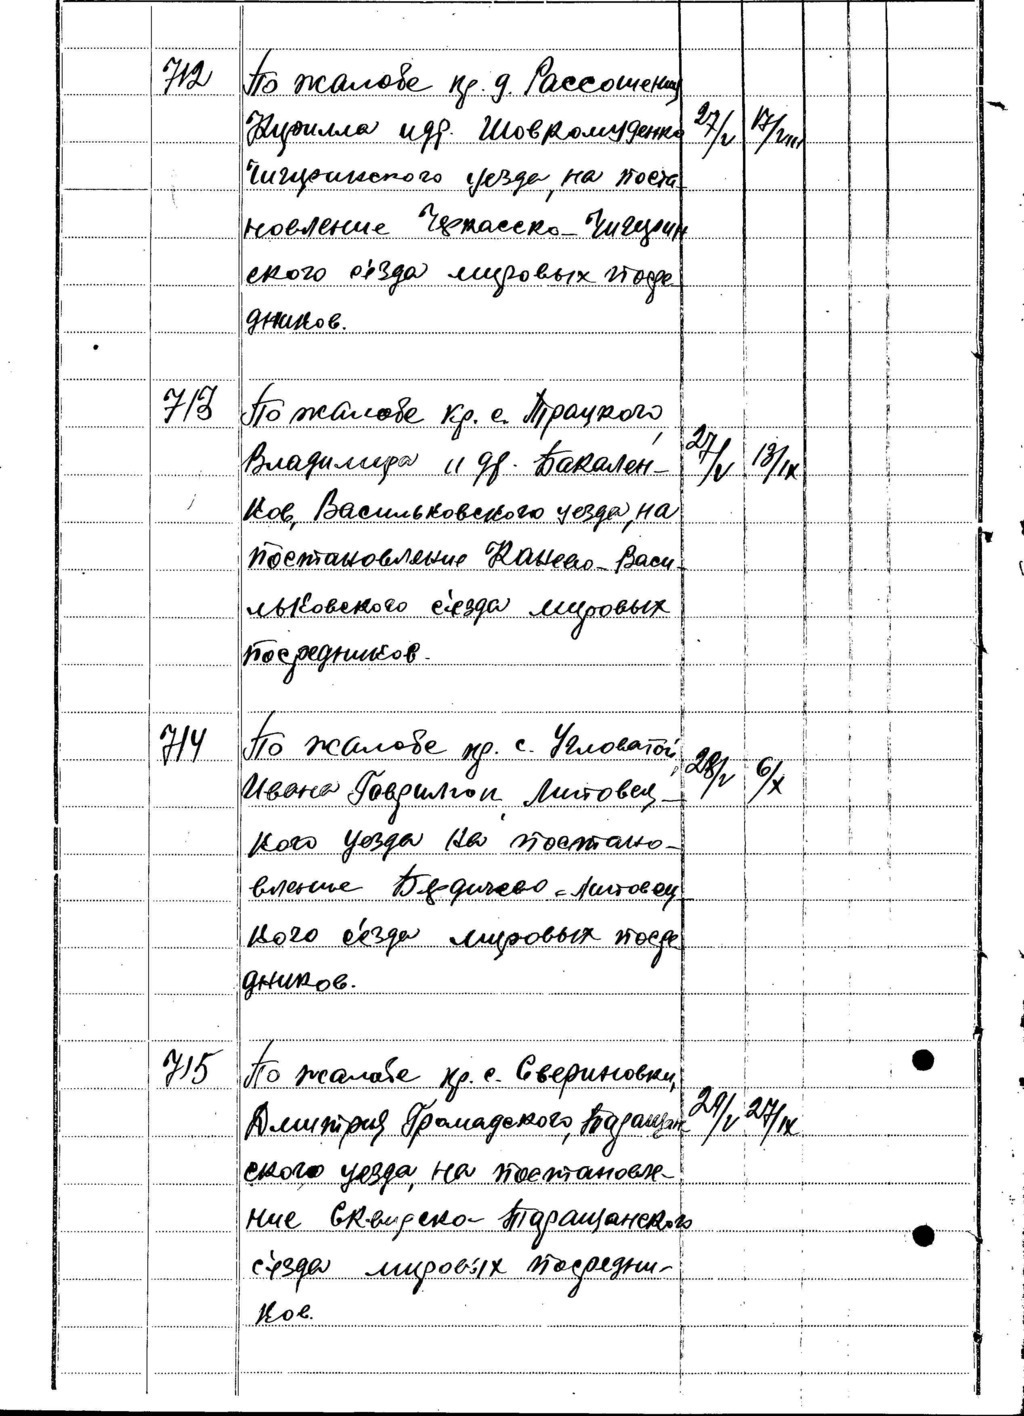 712 По жалобе кр. д. Рассошенец
Кирилла и др. Шовкомуденко 27/V 17/VIII
Чигиринского уезда, на поста-
новление Черкасско-Чигирин
ского съезда мировых посре
дников.
713 По жалобе кр. с. Троцкого,
Владимира и др. Бакален- 27/V 13/IX
ков, Васильковского уезда, на
постановление Канево-Васи-
льковского съезда мировых
посредников.
714 По жалобе кр. с. Угловатой,
Ивана Гаврилюк, Липовец- 28/V 6/X
кого уезда на постано-
вление Бердичево-Липовец
кого съезда мировых посре
дников.
715 По жалобе кр. с. Свериновки,
Дмитрия Громадского, Таращан 29/V 27/IX
ского уезда, на постановле-
ние Сквирско-Таращанского
съезда мировых посредни-
ков.